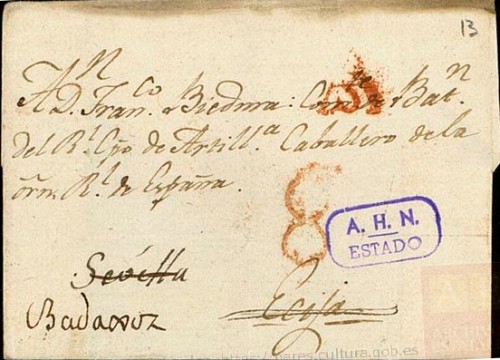 13
A D.n Fran.co Biedma: Com.te de Bat.n
del R.l Cpo de Artill.a Caballero de la
Orn. R.l de España.
8
A. H. N.
ESTADO
Sevilla
Badaxoz
Ecija
pares.cultura.gob.es